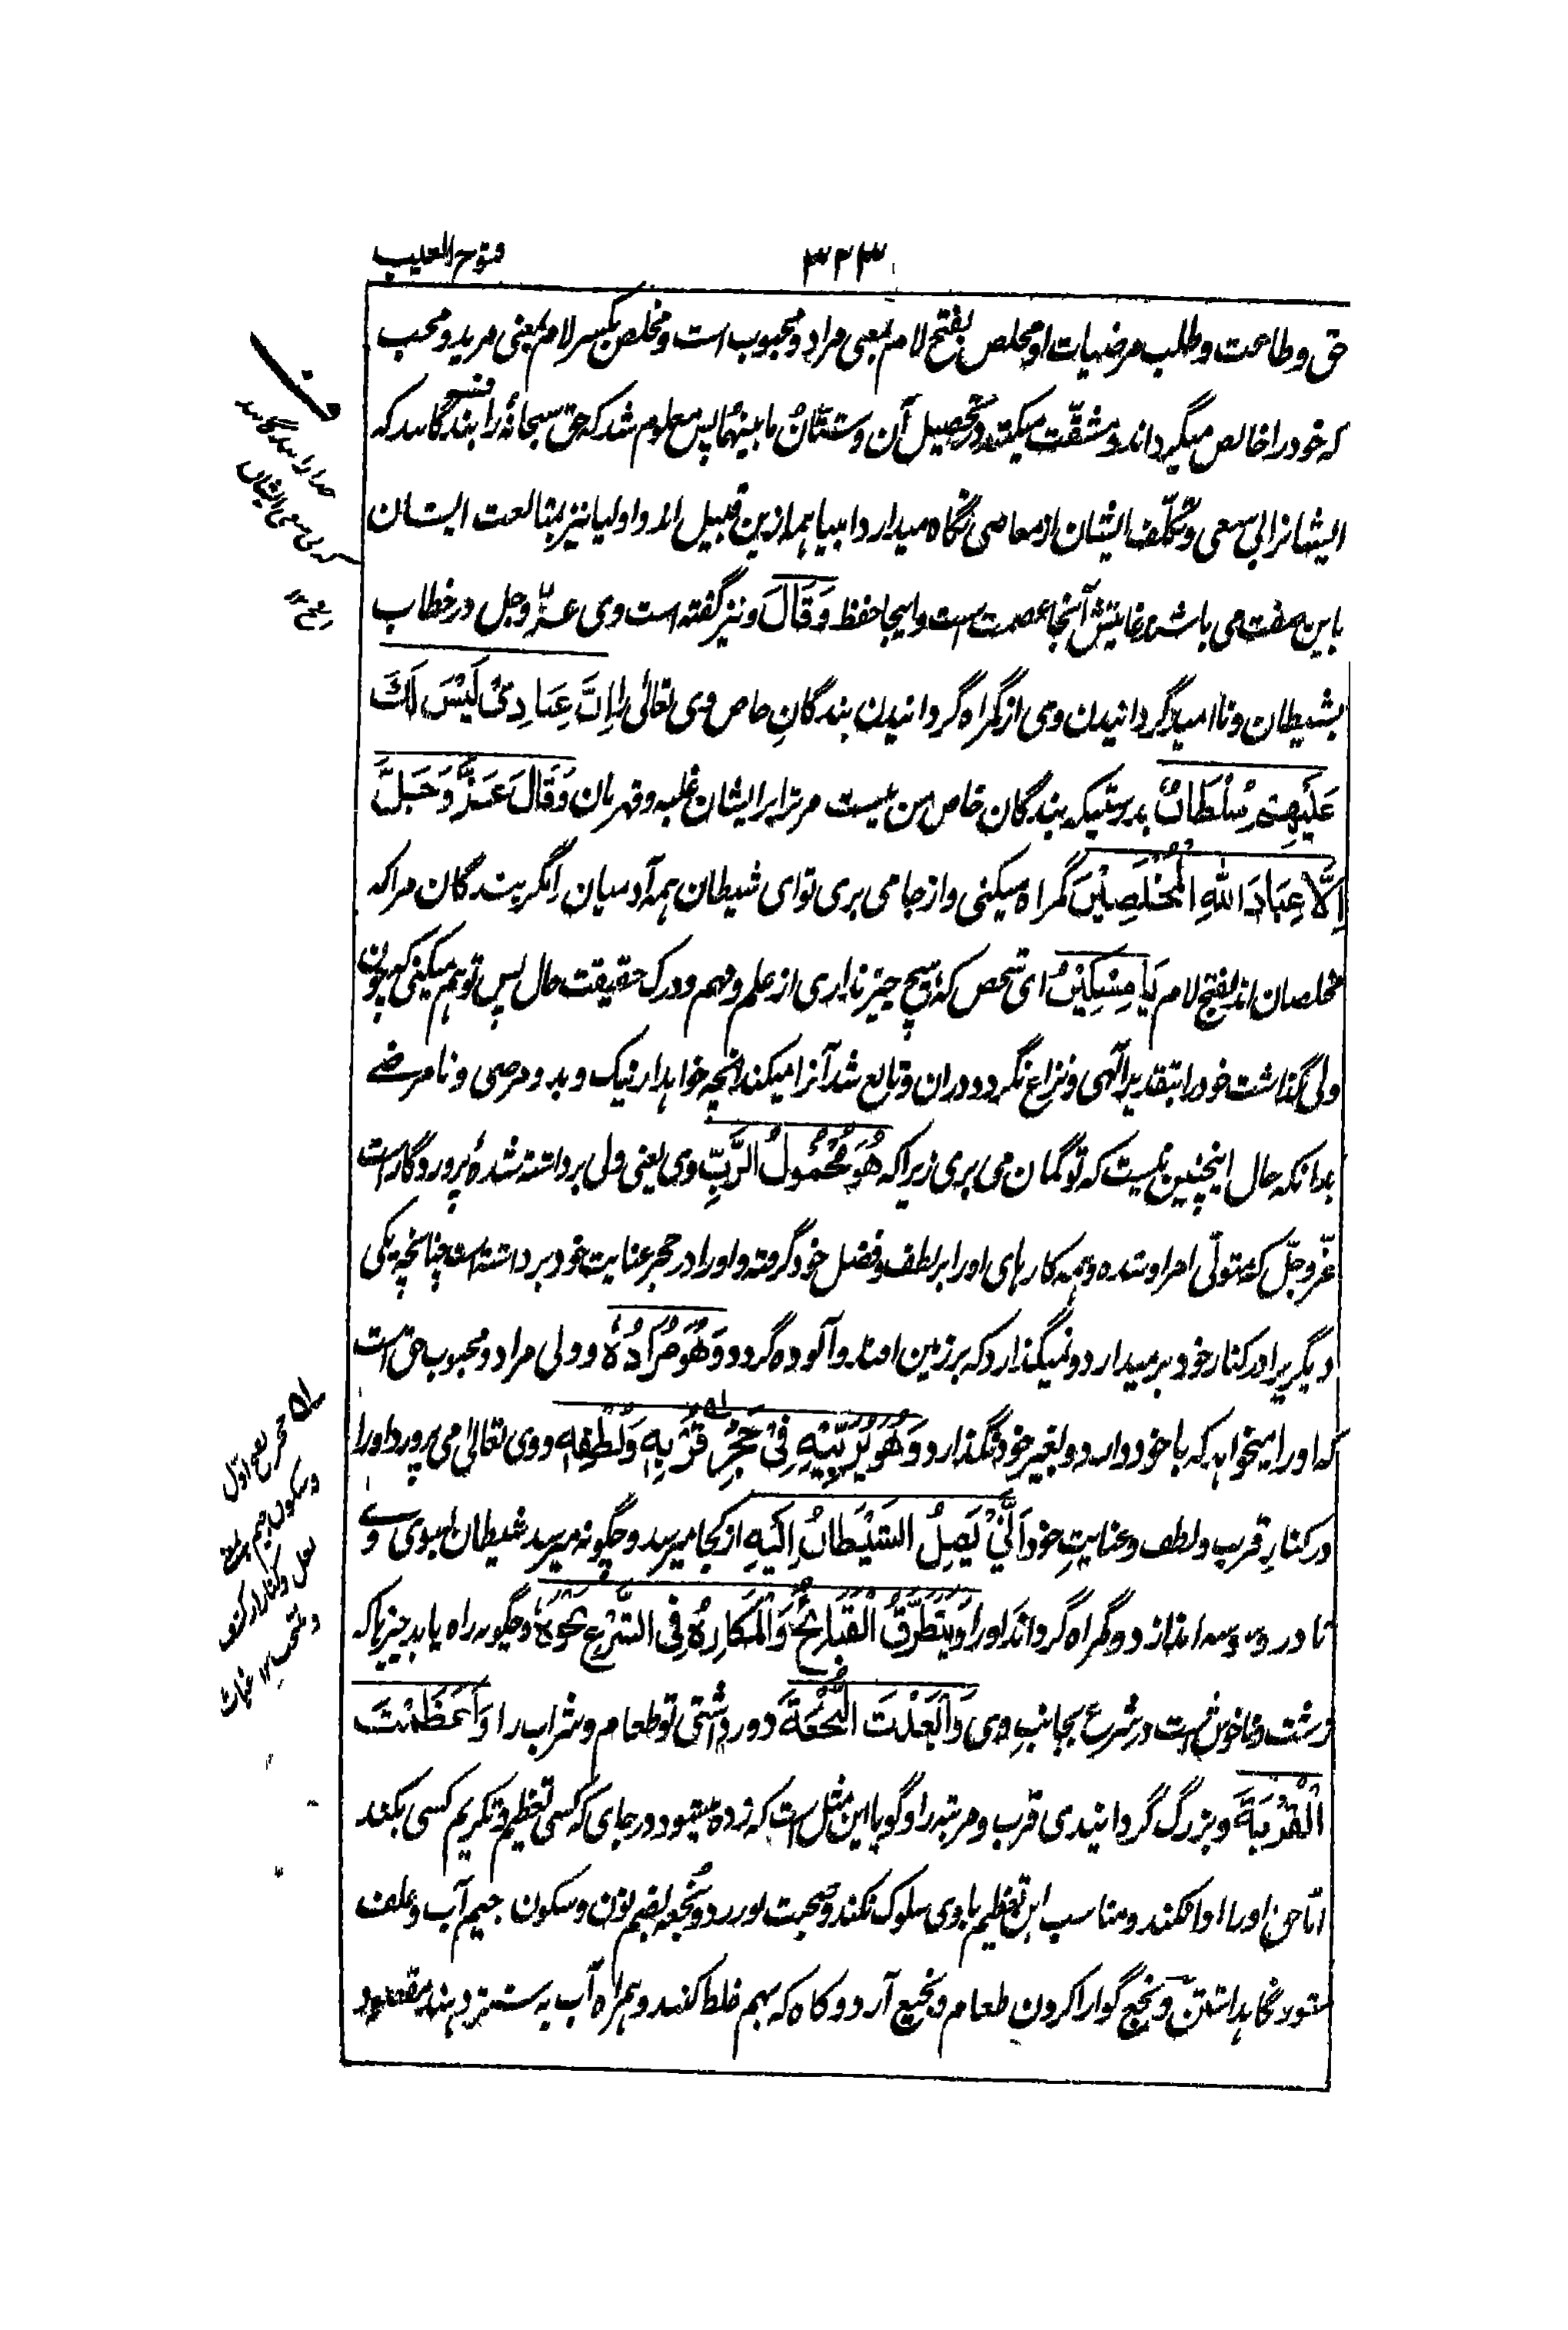 فتوح الغیب
۳۲۳
حق و طاعت و طلب مرضیات او مخلص بفتح لام بمعنی مراد و محبوب است و مخلص بکسر لام بمعنی مرید و محب
که خود را خالص میگرداند و مشقّت میکشد در تحصیل آن و شتّان ما بینهما پس معلوم شد که حق سبحانهٔ را بندگانند که
ایشانرا بی سعی و تکلّف ایشان از معاصی نگاه میدارد انبیا همه ازین قبیل اند و اولیا نیز بمتابعت ایشان
باین صفت می باشند غایتش آنجا عصمت است و اینجا حفظ وَقَالَ و نیز گفته است وی عزّ وجل در خطاب
بشیطان و ناامید گردانیدن وی از گمراه گردانیدن بندگانِ خاص وی تعالٰی را اِنَّ عِبَادِیْ لَیْسَ لَكَ
عَلَیْهِمْ سُلْطَانٌ بدرستیکه بندگان خاص من نیست مر ترا بر ایشان غلبه و قهرمان وَقَالَ عَزَّ وَجَلَّ
اِلَّا عِبَادَ اللهِ الْمُخْلَصِیْنَ گمراه میکنی و از جا می بری تو ای شیطان همه آدمیان را مگر بندگان مرا که
مخلصان اند بفتح لام یَا مِسْکِیْنُ ای شخص که هیچ چیز نداری از علم و فهم و درک حقیقت حال پس توهم میکنی که چون
ولی گذاشت خود را بتقدیر الٰهی و نزاع نگردد در ان و تابع شد آنرا میکند آنچه خواهد از نیک و بد و مرضی و نامرضے
بدانکه حال اینچنین نیست که تو گمان می بری زیرا که هُوَ مَحْمُوْلُ الرَّبِّ وی یعنی ولی برداشته شدهٔ پروردگار است
عزّ وجلّ که متولّی امر او شده و همه کارهای او را بر لطف و فضل خود گرفته و او را در حجر عنایت خود برداشته است چنانچه یکی
دیگریرا در کنار خود برمیدارد و نمیگذارد که بر زمین افتد و آلوده گردد وَهُوَ مُرَادُهٗ و ولی مراد و محبوب حق است
که او را میخواهد که با خود دارد و بغیر خود نگذارد وَهُوَ یُرَبِّیْهِ فِیْ حَجْرِ قُرْبِهٖ وَلُطْفِهٖ و وی تعالٰی می پرورد او را
در کنارِ قرب و لطف و عنایتِ خود اَنّٰی یَصِلُ الشَّیْطَانُ اِلَیْهِ از کجا میرسد و چگونه میرسد شیطان بسوی وے
تا در وسوسه اندازد و گمراه گرداند او را وَیَتَطَرَّقُ الْقَبَائِحُ وَالْمَکَارِهُ فِی الشَّرْعِ نَحْوَهٗ و چگونه راه یابد چیزها که
زشت و ناخوش است در شرع بجانبِ وی وَاَبْعَدْتَ النُّجْعَةَ دور داشتی تو طعام و شراب را وَاَعْظَمْتَ
الْقُرْبَةَ و بزرگ گردانیدی قرب و مرتبه را و گویا این مثل است که زده میشود در جای که کسی تعظیم و تکریم کسی بکند
امّا حق او را ادا نکند و مناسب این تعظیم با وی سلوک نکند و صحبت نورزد و نجعه بضم نون و سکون جیم آب و علف
ستور نگاهداشتن و نجع گوارا کردن طعام و نجیع آرد و کاه که بهم خلط کنند و همراه آب به ستر دهند مقصود
خدا را بندگانند
که بی سعی ایشان
حجر بفتح اوّل
و سکون جیم
بغل و کنار
غیاث